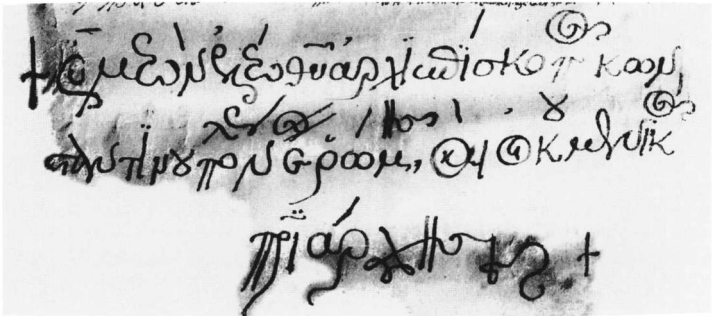 + Συμεὼν ἐλέω θῦ ἀρχιεπίσκοπος κων
σταντινουπόλεως νέας ῥώμης, καὶ οἰκουμενικὸς
πριάρχης +